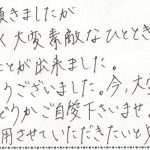 頂きましたが
く大変素敵なひととき
ことが出来ました。
うございました。今、大変
どうかご自愛下さいませ。
用させていただきたいと